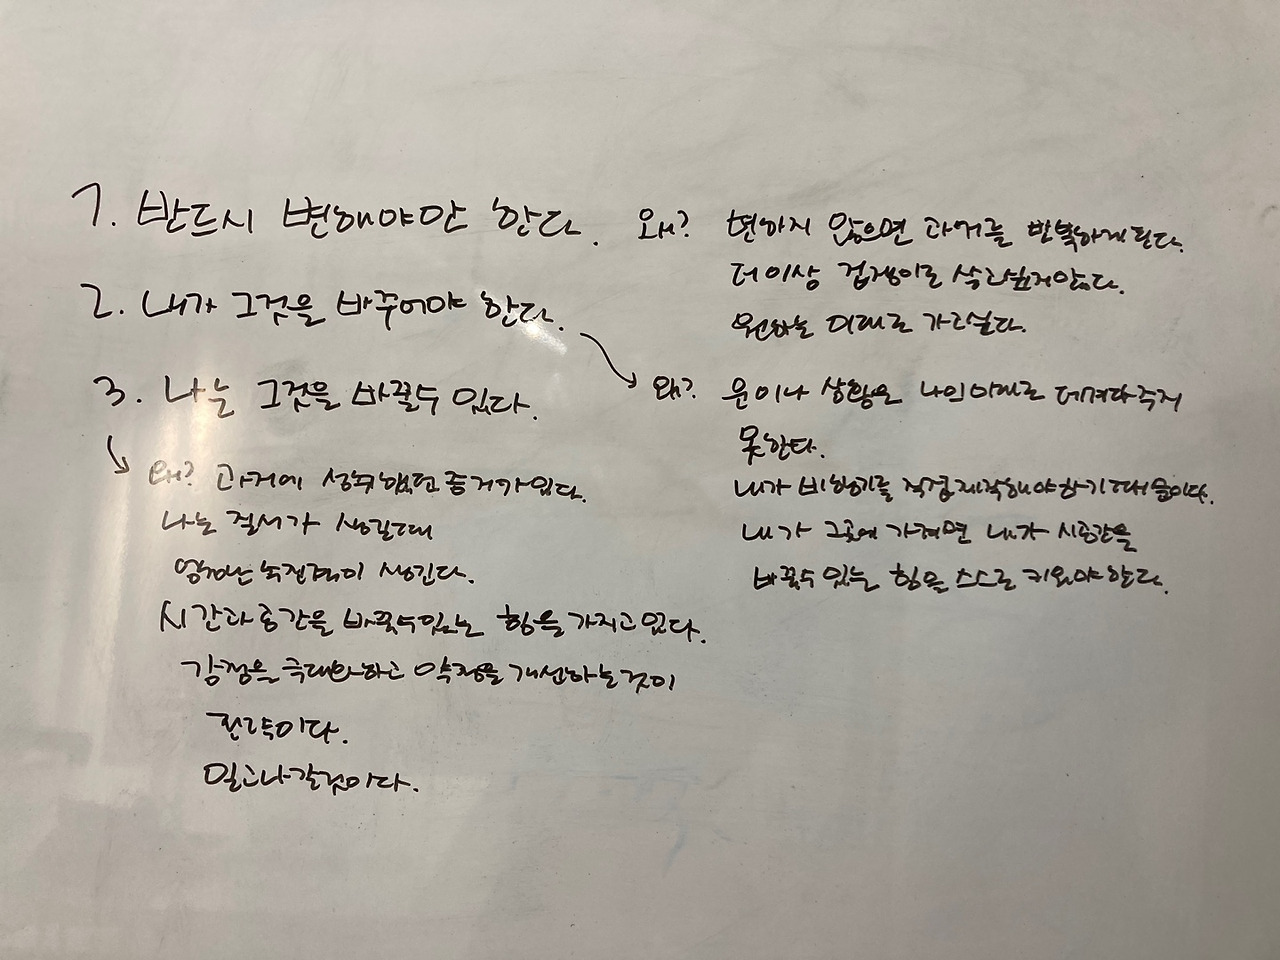 1. 반드시 변해야만 한다.
왜? 변하지 않으면 과거를 반복하게 된다.
더이상 겁쟁이로 살고싶지않다.
원하는 미래로 가고싶다.
2. 내가 그것을 바꾸어야 한다.
왜? 운이나 상황은 나의미래로 데려다주지
못한다.
내가 비행기를 직접제작해야하기때문이다.
내가 그곳에 가려면 내가 시공간을
바꿀수있는 힘을 스스로 키워야한다.
3. 나는 그것을 바꿀수 있다.
왜? 과거에 성취했던 증거가있다.
나는 질서가 생길때
엄청난 추진력이 생긴다.
시간과공간을 바꿀수있는 힘을가지고있다.
강점은 극대화하고 약점을개선하는것이
전략이다.
밀고나갈것이다.